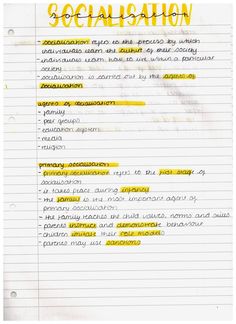 SOCIALISATION
- socialisation refers to the process by which
individuals learn the culture of their society
- individuals learn how to live within a particular
society
- socialisation is carried out by the agents of
socialisation
agents of socialisation
- family
- peer groups
- education system
- media
- religion
primary socialisation
- primary socialisation refers to the first stage of
socialisation
- it takes place during infancy
- the family is the most important agent of
primary socialisation
- the family teaches the child values, norms and roles
- parents instruct and demonstrate behaviour
- children imitate their role models
- parents may use sanctions